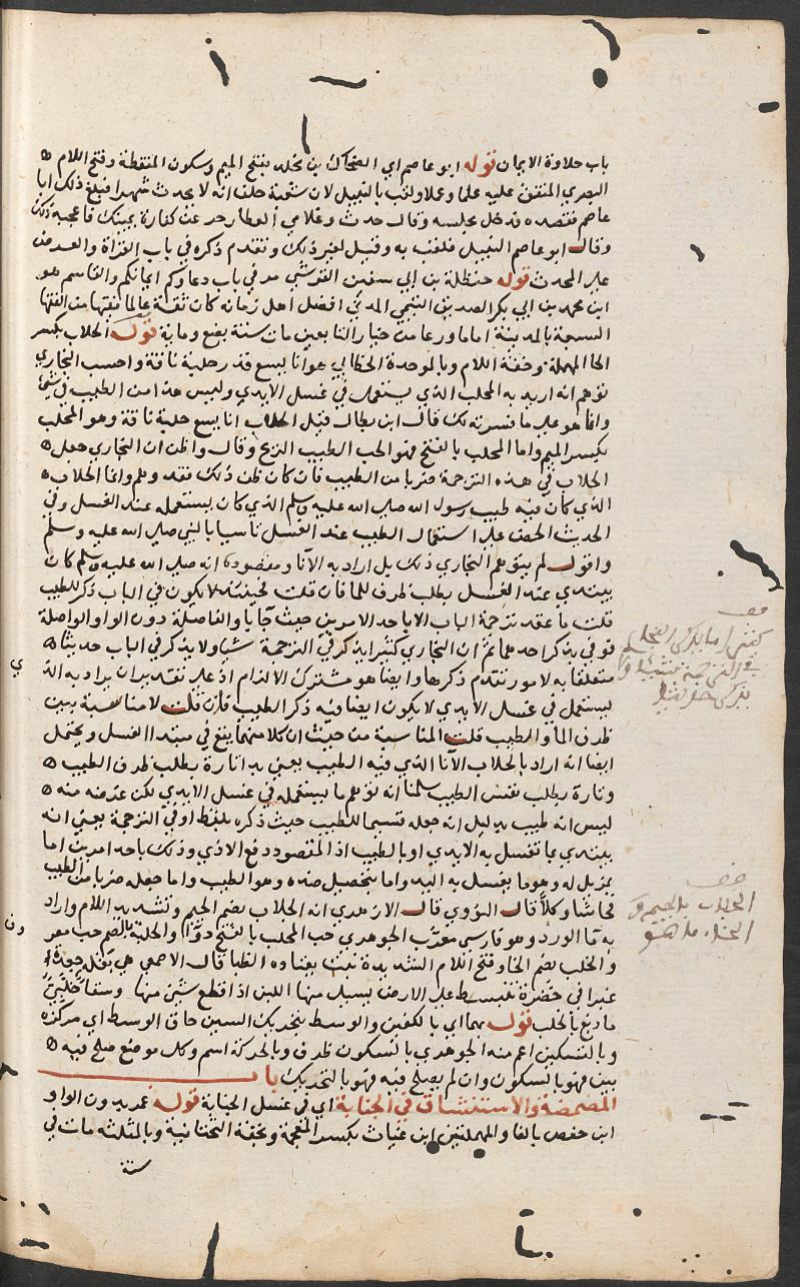 باب حلاوة الايمان قوله ابو عاصم اي الضحاك بن مخلد بفتح الميم وسكون المنقطة وفتح اللام
البصري المتفق عليه علما وعملا ولقب بالنبيل لان شعبة حلف انه لا يحدث شهرا فبلغ ذلك ابا
عاصم فقصده فدخل مجلسه وقال حدث وغلامي العطار حر عن كفارة يمينك فاعجبه ذلك
وقال ابو عاصم النبيل فلقب به وقيل لغير ذلك وتقدم ذكره في باب القراة والعرض
علي المحدث قوله حنظلة بن ابي سفين القرشي مر في باب دعاوكم ايمانكم والقاسم هو
ابن محمد بن ابي بكر الصديق التيمي المدني افضل اهل زمانه كان ثقة عالما فقيها من الفقها
السبعة بالمدينة اماما ورعا من خيار التابعين مات سنة بضع وماية قوله الحلاب بكسر
الحا المهملة وخفة اللام وبالموحدة الخطابي هو انا يسع قدر حلبة ناقة واحسب البخاري
توهم انه اريد به المحلب الذي يستعمل في غسل الايدي وليس هذا من الطيب في شي
وانما هو علي ما فسرته لك قال ابن بطال قيل الحلاب انا يسع حلبة ناقة وهو المحلب
بكسر الميم واما المحلب بالفتح فهو الحب الطيب الريح وقال واظن ان البخاري جعل
الحلاب في هذه الترجمة ضربا من الطيب فان كان ظن ذلك فقد وهم وانما الحلاب
الذي كان فيه طيب رسول الله صلي الله عليه وسلم الذي كان يستعمله عند الغسل وفي
الحديث الحض علي استعمال الطيب عند الغسل تاسيا بالنبي صلي الله عليه وسلم
واقول لم يتوهم البخاري ذلك بل اراد به الانا ومقصوده انه صلي الله عليه وسلم كان
يبتدي عند الغسل بطلب ظرف للما فان قلت فحينئذ لا يكون في الباب ذكر للطيب
قلت ما عقد ترجمة الباب الا باحد الامرين حيث جا باو الفاصلة دون الواو الواصلة
فوفي بذكر احدهما ثم ان البخاري كثيرا يذكر في الترجمة شيا ولا يذكر في الباب حديثا
متعلقا به لامور تقدم ذكرها وايضا هو مشترك الالزام اذ علي تقدير ان يراد به الذي
يستعمل في غسل الايدي لا يكون ايضا فيه ذكر الطيب فان قلت لا مناسبة بين
ظرف الما والطيب قلت المناسبة من حيث ان كلا منهما يقع في مبتدا الغسل ويحتمل
ايضا انه اراد بالحلاب الانا الذي فيه الطيب يعني بدا تارة بطلب ظرف الطيب
وتارة بطلب نفس الطيب سلمنا انه توهم ما يستعمله في غسل الايدي لكن غرضه منه
ليس انه طيب بدليل انه جعله قسيما للطيب حيث ذكره بلفظ او في الترجمة يعني انه
يبتدي بما تغسل به الايدي او بالطيب اذ المقصود دفع الاذي وذلك باحد امرين اما
بمزيل له وهو ما يغسل به اليد واما بتحصيل ضده وهو الطيب واما جعله ضربا من الطيب
فحاشا وكلا قال النووي قال الازهري انه الجلاب بضم الجيم وتشديد اللام واراد
به ما الورد وهو فارسي معرب الجوهري حب المحلب بالفتح دوا والحلبة بالضم حب معر
والحلب بضم الحا وفتح اللام الشديدة نبت يعتاده الظبا قال الاصمعي هي بقلة جعدة
غبرا في خضرة تنبسط علي الارض يسيل منها اللبن اذا قطع شي منها وسقا حلبي
ما دبغ بالحلب قوله بهما اي بالكفين والوسط بتحريك السين حاق الوسط اي مركزه
وبالتسكين اعم منه الجوهري بالسكون ظرف وبالحركة اسم وكل موضع صلح فيه
بين فهو بالسكون وان لم يصلح فيه فهو بالتحريك باب
المضمضة والاستنشاق في الجنابة اي في غسل الجنابة قوله عمر بدون الواو
ابن حفص بالفا والمهملتين ابن غياث بكسر المعجمة وبخفة التحتانية وبالمثلثة مات في
سنة
قف
الجلاب بالجيم و
الحلا ما هو